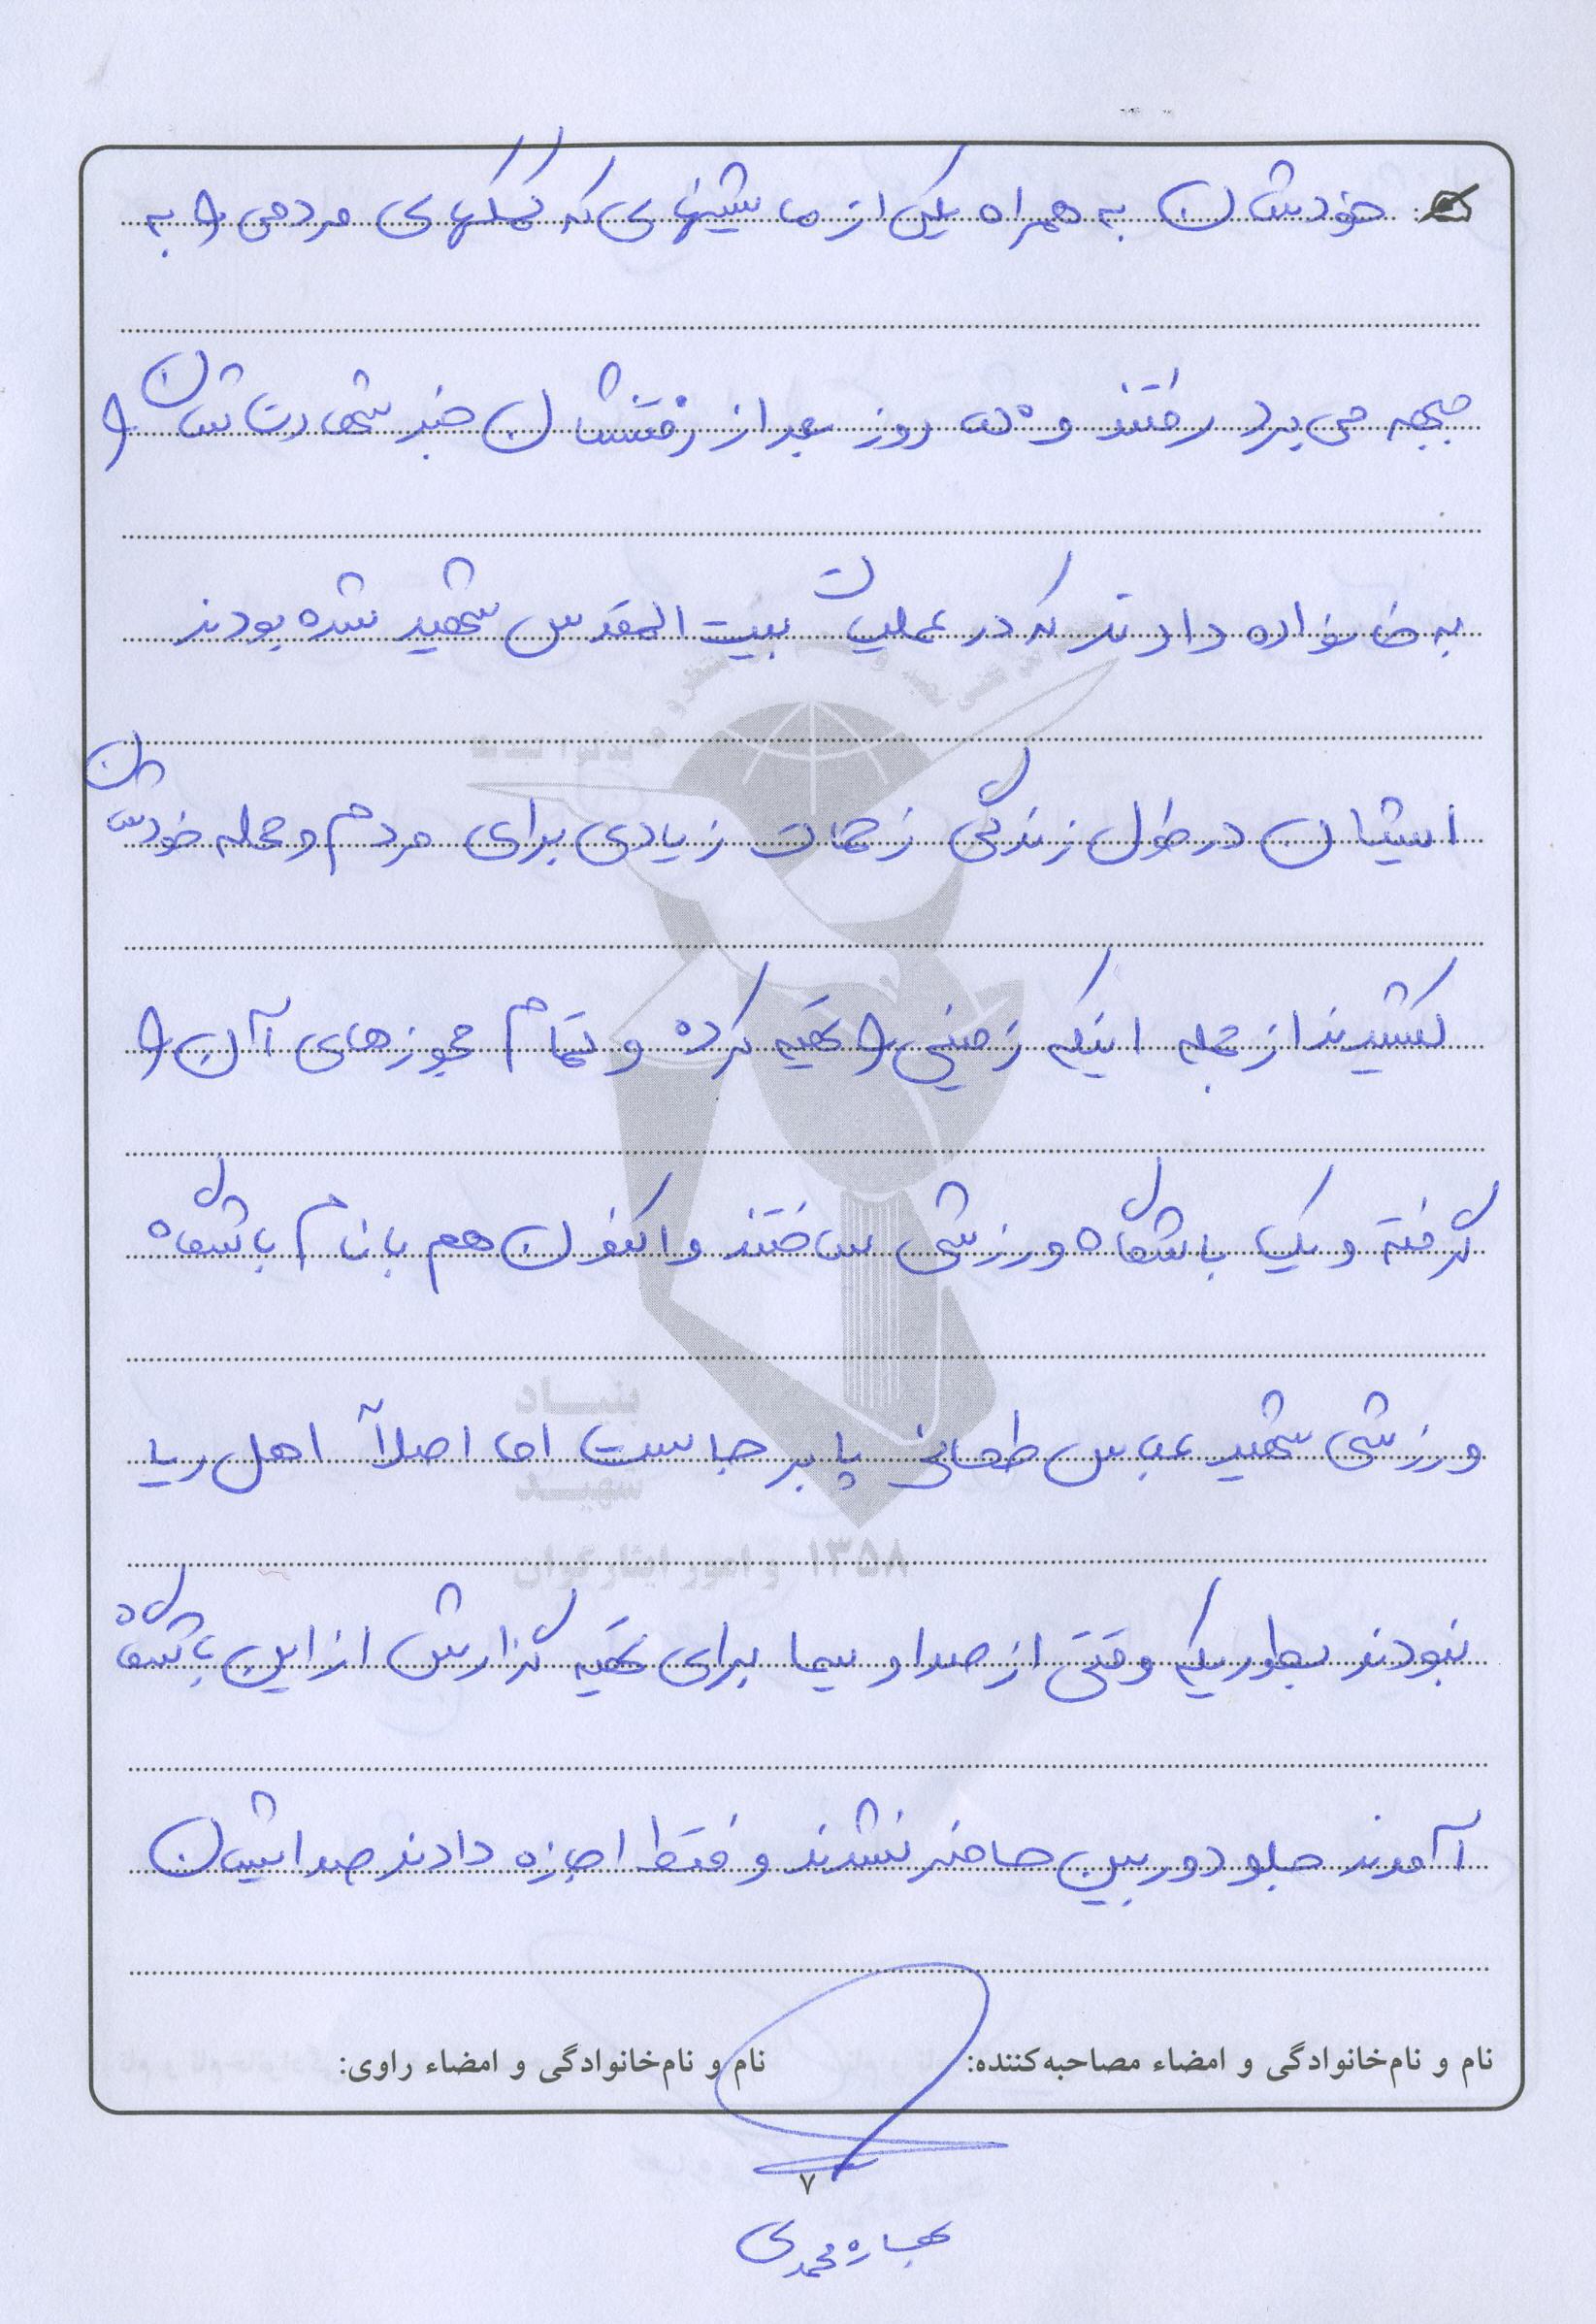 خودشان به همراه یکی از ماشینهای که کمکهای مردمی را به
جبهه می برد رفتند و ده روز بعد از رفتنشان خبر شهادتشان را
به خانواده دادند که در عملیات بیت المقدس شهید شده بودند
ایشان در طول زندگی زحمات زیادی برای مردم و محله خودشان
کشیدند از جمله اینکه زمینی را تهیه کرده و تمام مجوزهای آن را
گرفته و یک باشگاه ورزشی ساختند و اکنون هم با نام باشگاه
ورزشی شهید عباس طحانی پا بر جاست اما اصلاً اهل ریا
نبودند بطوریکه وقتی از صدا و سیما برای تهیه گزارش از این باشگاه
آمدند جلو دوربین حاضر نشدند و فقط اجازه دادند صدایشان
بنیاد
شهید
و امور ایثارگران ۱۳۵۸
نام و نام‌خانوادگی و امضاء مصاحبه‌کننده: نام و نام‌خانوادگی و امضاء راوی:
۷
بهاره محمدی